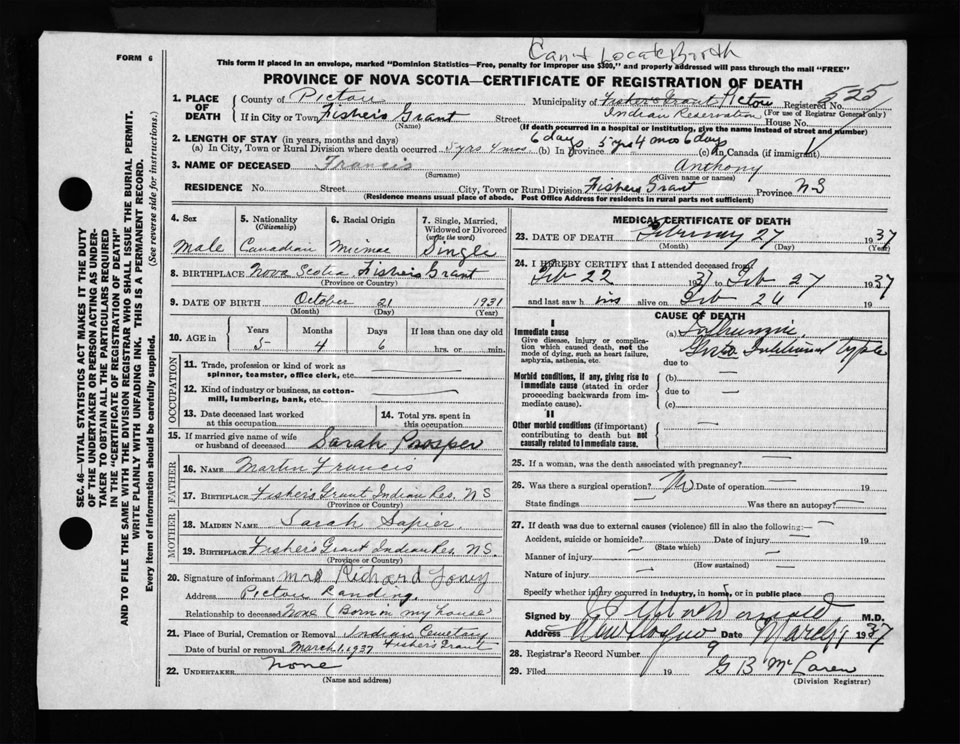 Can't Locate Birth
FORM 6
This form if placed in an envelope, marked "Dominion Statistics—Free, penalty for improper use $300," and properly addressed will pass through the mail "FREE"
PROVINCE OF NOVA SCOTIA—CERTIFICATE OF REGISTRATION OF DEATH
SEC. 46—VITAL STATISTICS ACT MAKES IT THE DUTY
OF THE UNDERTAKER OR PERSON ACTING AS UNDER-
TAKER TO OBTAIN ALL THE PARTICULARS REQUIRED
IN THE "CERTIFICATE OF REGISTRATION OF DEATH"
AND TO FILE THE SAME WITH THE DIVISION REGISTRAR WHO SHALL ISSUE THE BURIAL PERMIT.
WRITE PLAINLY WITH UNFADING INK. THIS IS A PERMANENT RECORD.
Every item of information should be carefully supplied. (See reverse side for instructions.)
1. PLACE OF DEATH County of Pictou Municipality of Fishers Grant Pictou Registered No. 535
If in City or Town Fishers Grant Street Indian Reservation House No. (For use of Registrar General only)
(Name) (If death occurred in a hospital or institution, give the name instead of street and number)
2. LENGTH OF STAY (in years, months and days)
(a) In City, Town or Rural Division where death occurred 5 yrs 4 mos 6 days (b) In Province 5 yrs 4 mos 6 days (c) In Canada (if immigrant)
3. NAME OF DECEASED Francis Anthony
(Surname) (Given name or names)
RESIDENCE No. Street City, Town or Rural Division Fishers Grant Province N S
(Residence means usual place of abode. Post Office Address for residents in rural parts not sufficient)
4. Sex Male
5. Nationality (Citizenship) Canadian
6. Racial Origin Micmac
7. Single, Married, Widowed or Divorced (write the word) Single
8. BIRTHPLACE Nova Scotia Fishers Grant
(Province or Country)
9. DATE OF BIRTH October 21 1931
(Month) (Day) (Year)
10. AGE in Years 5 Months 4 Days 6 If less than one day old hrs. or min.
OCCUPATION
11. Trade, profession or kind of work as spinner, teamster, office clerk, etc.
12. Kind of industry or business, as cotton-mill, lumbering, bank, etc.
13. Date deceased last worked at this occupation
14. Total yrs. spent in this occupation
15. If married give name of wife or husband of deceased Sarah Prosper
FATHER
16. NAME Martin Francis
17. BIRTHPLACE Fishers Grant Indian Res. N S
(Province or Country)
MOTHER
18. MAIDEN NAME Sarah Sapier.
19. BIRTHPLACE Fishers Grant Indian Res. N S.
(Province or Country)
20. Signature of informant Mrs Richard
Address Pictou Landing.
Relationship to deceased None (Born in my house
21. Place of Burial, Cremation or Removal Indian Cemetary
Date of burial or removal March 1, 1937 Fishers Grant
22. UNDERTAKER None
(Name and address)
MEDICAL CERTIFICATE OF DEATH
23. DATE OF DEATH February 27 1937
(Month) (Day) (Year)
24. I HEREBY CERTIFY that I attended deceased from
Feb 22 1937 to Feb 27 1937
and last saw him alive on Feb 26 19
CAUSE OF DEATH
I
Immediate cause
Give disease, injury or complication which caused death, not the mode of dying, such as heart failure, asphyxia, asthenia, etc.
(a)
due to
Morbid conditions, if any, giving rise to immediate cause (stated in order proceeding backwards from immediate cause).
(b)
due to
(c)
II
Other morbid conditions (if important) contributing to death but not causally related to immediate cause.
25. If a woman, was the death associated with pregnancy?
26. Was there a surgical operation? No Date of operation 19
State findings Was there an autopsy?
27. If death was due to external causes (violence) fill in also the following:—
Accident, suicide or homicide? Date of injury 19
(State which)
Manner of injury
(How sustained)
Nature of injury
Specify whether injury occurred in Industry, in home, or in public place
Signed by M.D.
Address New Glasgow Date March 9 1937
28. Registrar's Record Number 9
29. Filed 19 G B McLaren
(Division Registrar)